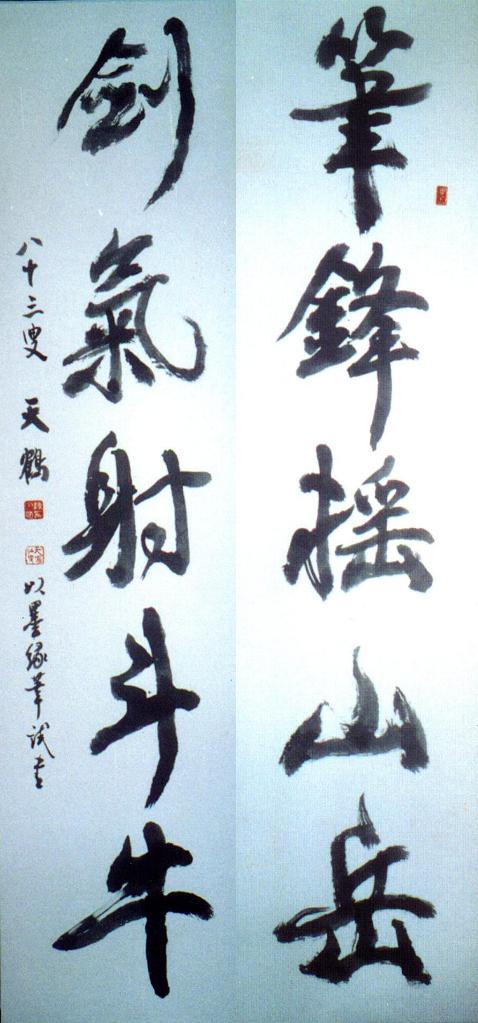 筆鋒搖山岳
劍氣射斗牛
八十三叟 天鶴
以墨緣筆試書